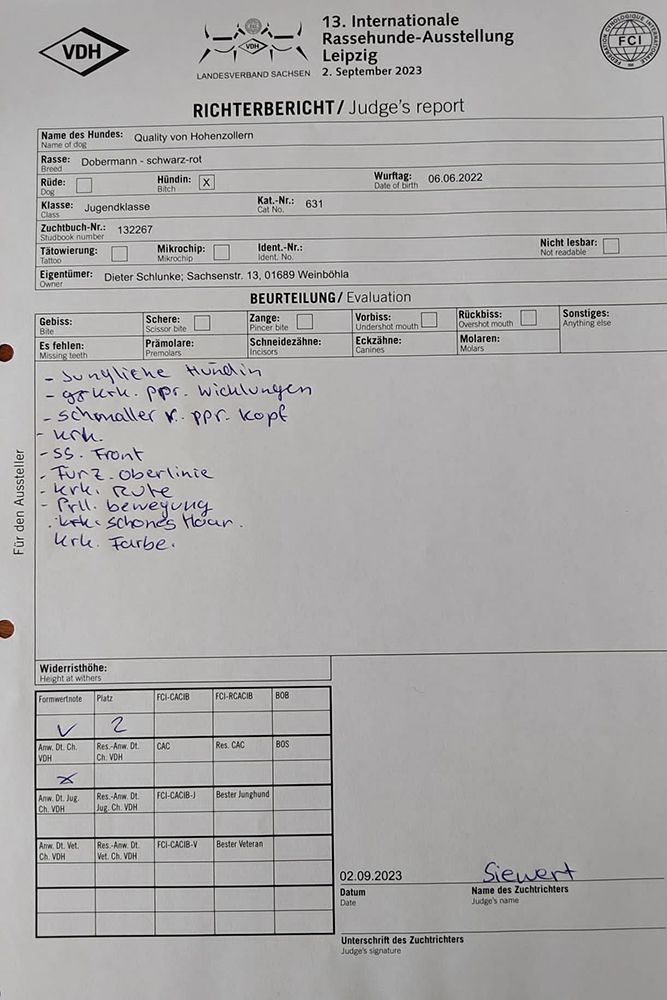 VDH
VDH
LANDESVERBAND SACHSEN
13. Internationale
Rassehunde-Ausstellung
Leipzig
2. September 2023
FEDERATION CYNOLOGIQUE INTERNATIONALE
FCI
RICHTERBERICHT/ Judge's report
Name des Hundes: Quality von Hohenzollern
Name of dog
Rasse: Dobermann - schwarz-rot
Breed
Rüde: Hündin: X Wurftag: 06.06.2022
Dog Bitch Date of birth
Klasse: Jugendklasse Kat.-Nr.: 631
Class Cat No.
Zuchtbuch-Nr.: 132267
Studbook number
Tätowierung: Mikrochip: Ident.-Nr.: Nicht lesbar:
Tattoo Mikrochip Ident. No. Not readable
Eigentümer: Dieter Schlunke; Sachsenstr. 13, 01689 Weinböhla
Owner
BEURTEILUNG/ Evaluation
Gebiss: Schere: Zange: Vorbiss: Rückbiss: Sonstiges:
Bite Scissor bite Pincer bite Undershot mouth Overshot mouth Anything else
Es fehlen: Prämolare: Schneidezähne: Eckzähne: Molaren:
Missing teeth Premolars Incisors Canines Molars
- Jungliche Hündin
- krk. ppr. Wicklungen
- schmaller k. ppr. Kopf
- krk.
- ss. Front
- Oberlinie
- krk. Rute
- Prll. bewegung
krk. schönes Haar.
krk. Farbe.
Für den Aussteller
Widerristhöhe:
Height at withers
Formwertnote Platz FCI-CACIB FCI-RCACIB BOB
V 2
Anw. Dt. Ch. VDH Res.-Anw. Dt. Ch. VDH CAC Res. CAC BOS
x
Anw. Dt. Jug. Ch. VDH Res.-Anw. Dt. Jug. Ch. VDH FCI-CACIB-J Bester Junghund
Anw. Dt. Vet. Ch. VDH Res.-Anw. Dt. Vet. Ch. VDH FCI-CACIB-V Bester Veteran
02.09.2023 Siewert
Datum Name des Zuchtrichters
Date Judge's name
Unterschrift des Zuchtrichters
Judge's signature